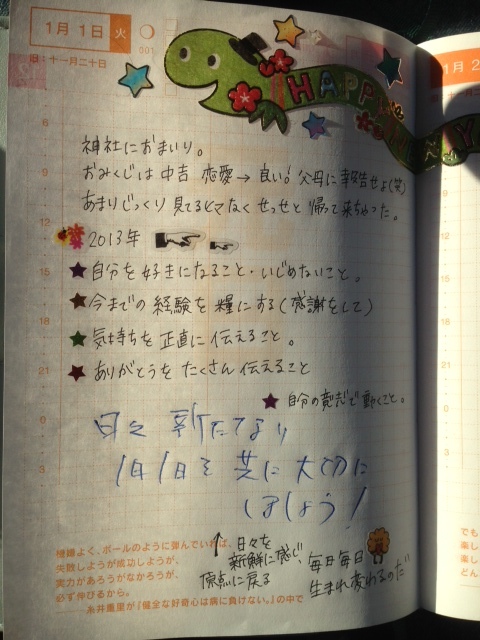 1月1日 火
001
旧:十一月二十日
1月 2
HAPPY
神社におまいり。
おみくじは 中吉 恋愛→良い! 父母に報告せよ(笑)
あまりじっくり見てるヒマなくせっせと帰って来ちゃった。
2013年
★自分を好きになること・いじめないこと。
★今までの経験を糧にする(感謝をして)
★気持ちを正直に伝えること。
★ありがとうをたくさん伝えること
★自分の意志で動くこと。
日々新たてなり
1日1日を共に大切に
しましょう!
↑日々を
新鮮に感じ、
原点に戻る
毎日毎日
生まれ変わるのだ
機嫌よく、ボールのように弾んでいれば、
失敗しようが成功しようが、
実力があろうがなかろうが、
必ず伸びるから。
――糸井重里が『健全な好奇心は病に負けない。』の中で
6
9
12
15
18
21
0
3